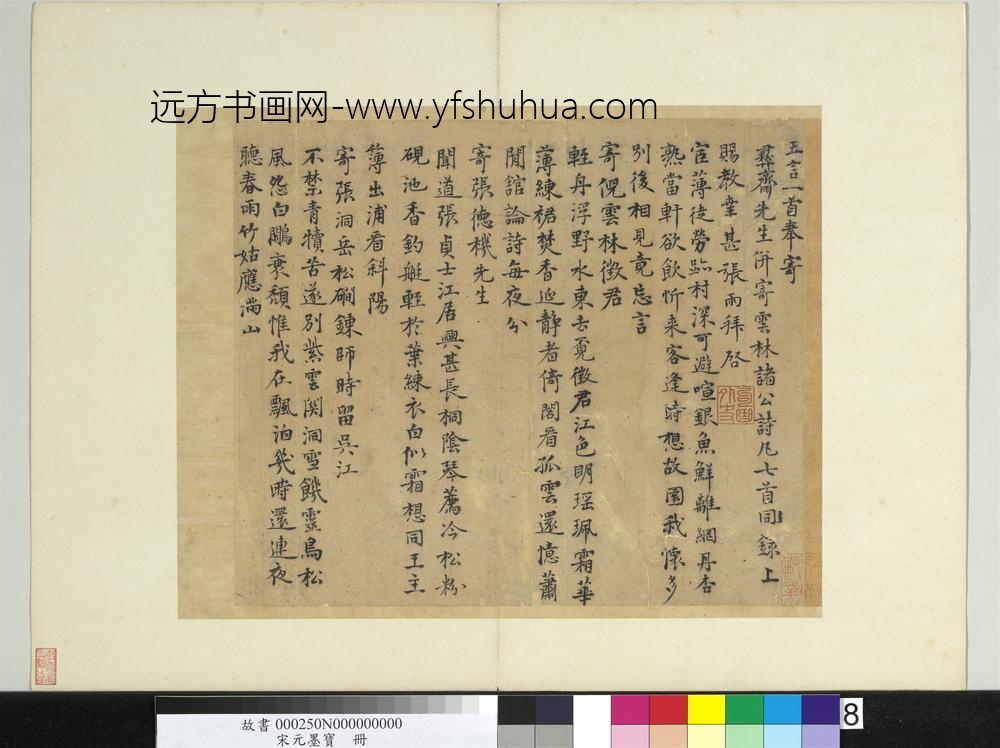 远方书画网-www.yfshuhua.com
五言一首奉寄
彝齋先生併寄雲林諸公詩凡七首同錄上
賜教幸甚張雨拜啓
宦薄徒勞跡村深可避喧銀魚鮮離網丹杏
熟當軒欲飲忻来客逢時想故園我懷多
別後相見竟忘言
寄倪雲林徵君
輕舟浮野水東去覓徵君江色明瑶珮霜華
薄練裙焚香延靜者倚閣看孤雲還憶蕭
閒舘論詩每夜分
寄張德機先生
聞道張貞士江居興甚長桐陰琴薦冷松粉
硯池香釣艇輕於葉練衣白似霜想同王主
簿出浦看斜陽
寄張洞岳松磵鍊師時留吳江
不禁青犢苦遂別紫雲関洞雪饑靈烏松
風怨白鷴衰顏惟我在飄泊幾時還連夜
聽春雨竹姑應満山
故書 000250N000000000
宋元墨寶 冊
8